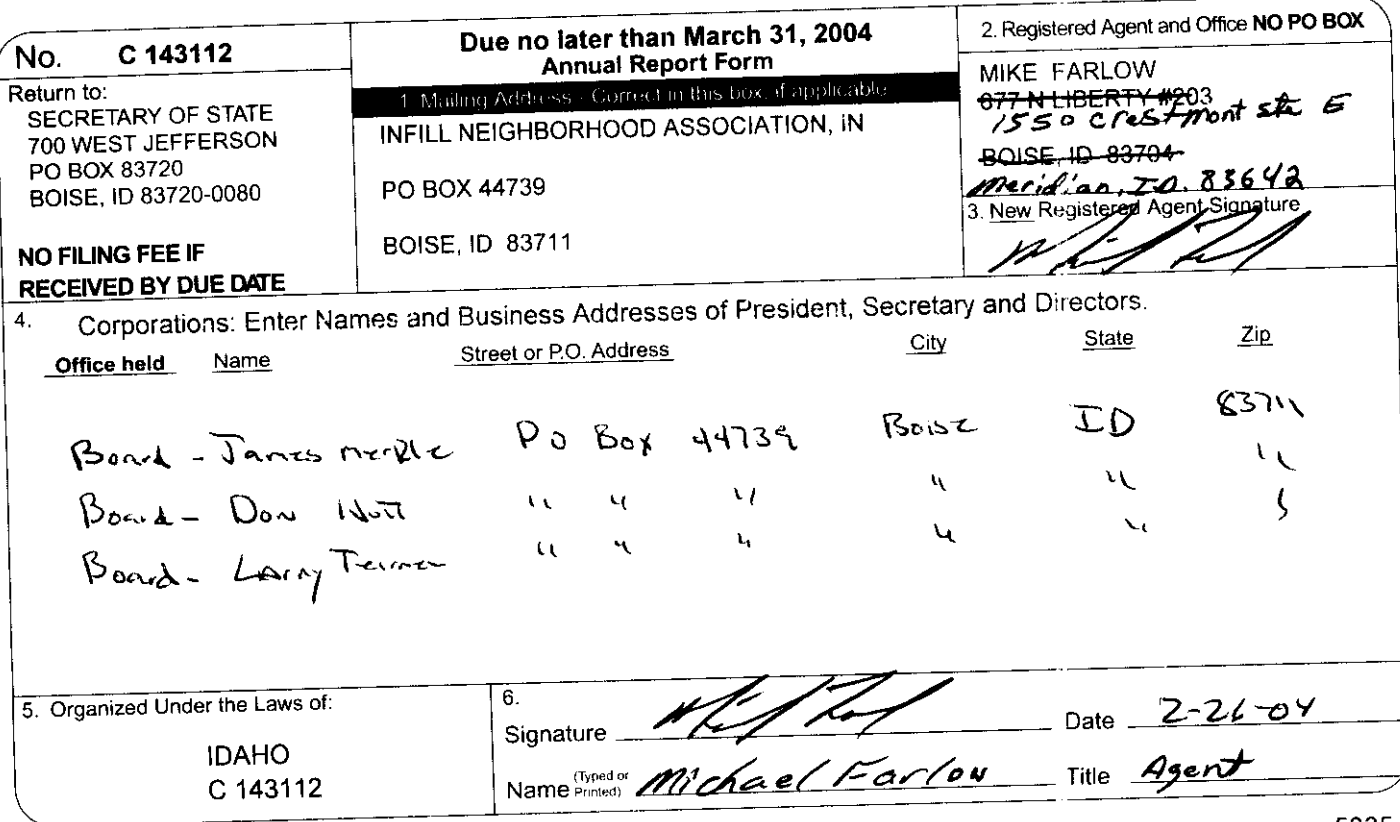 No. C 143112
Return to:
SECRETARY OF STATE
700 WEST JEFFERSON
PO BOX 83720
BOISE, ID 83720-0080
NO FILING FEE IF
RECEIVED BY DUE DATE
Due no later than March 31, 2004
Annual Report Form
1. Mailing Address - Correct in this box, if applicable
INFILL NEIGHBORHOOD ASSOCIATION, iN
PO BOX 44739
BOISE, ID 83711
2. Registered Agent and Office NO PO BOX
MIKE FARLOW
677 N LIBERTY #203
1550 Crestmont ste E
BOISE, ID 83704
Meridian, ID. 83642
3. New Registered Agent Signature
4. Corporations: Enter Names and Business Addresses of President, Secretary and Directors.
Office held Name Street or P.O. Address City State Zip
Board - James Merkle PO Box 44739 Boise ID 83711
Board - Don " " " " " "
Board - Larry " " " " "
5. Organized Under the Laws of:
IDAHO
C 143112
6.
Signature Date 2-26-04
Name (Typed or Printed) Michael Farlow Title Agent